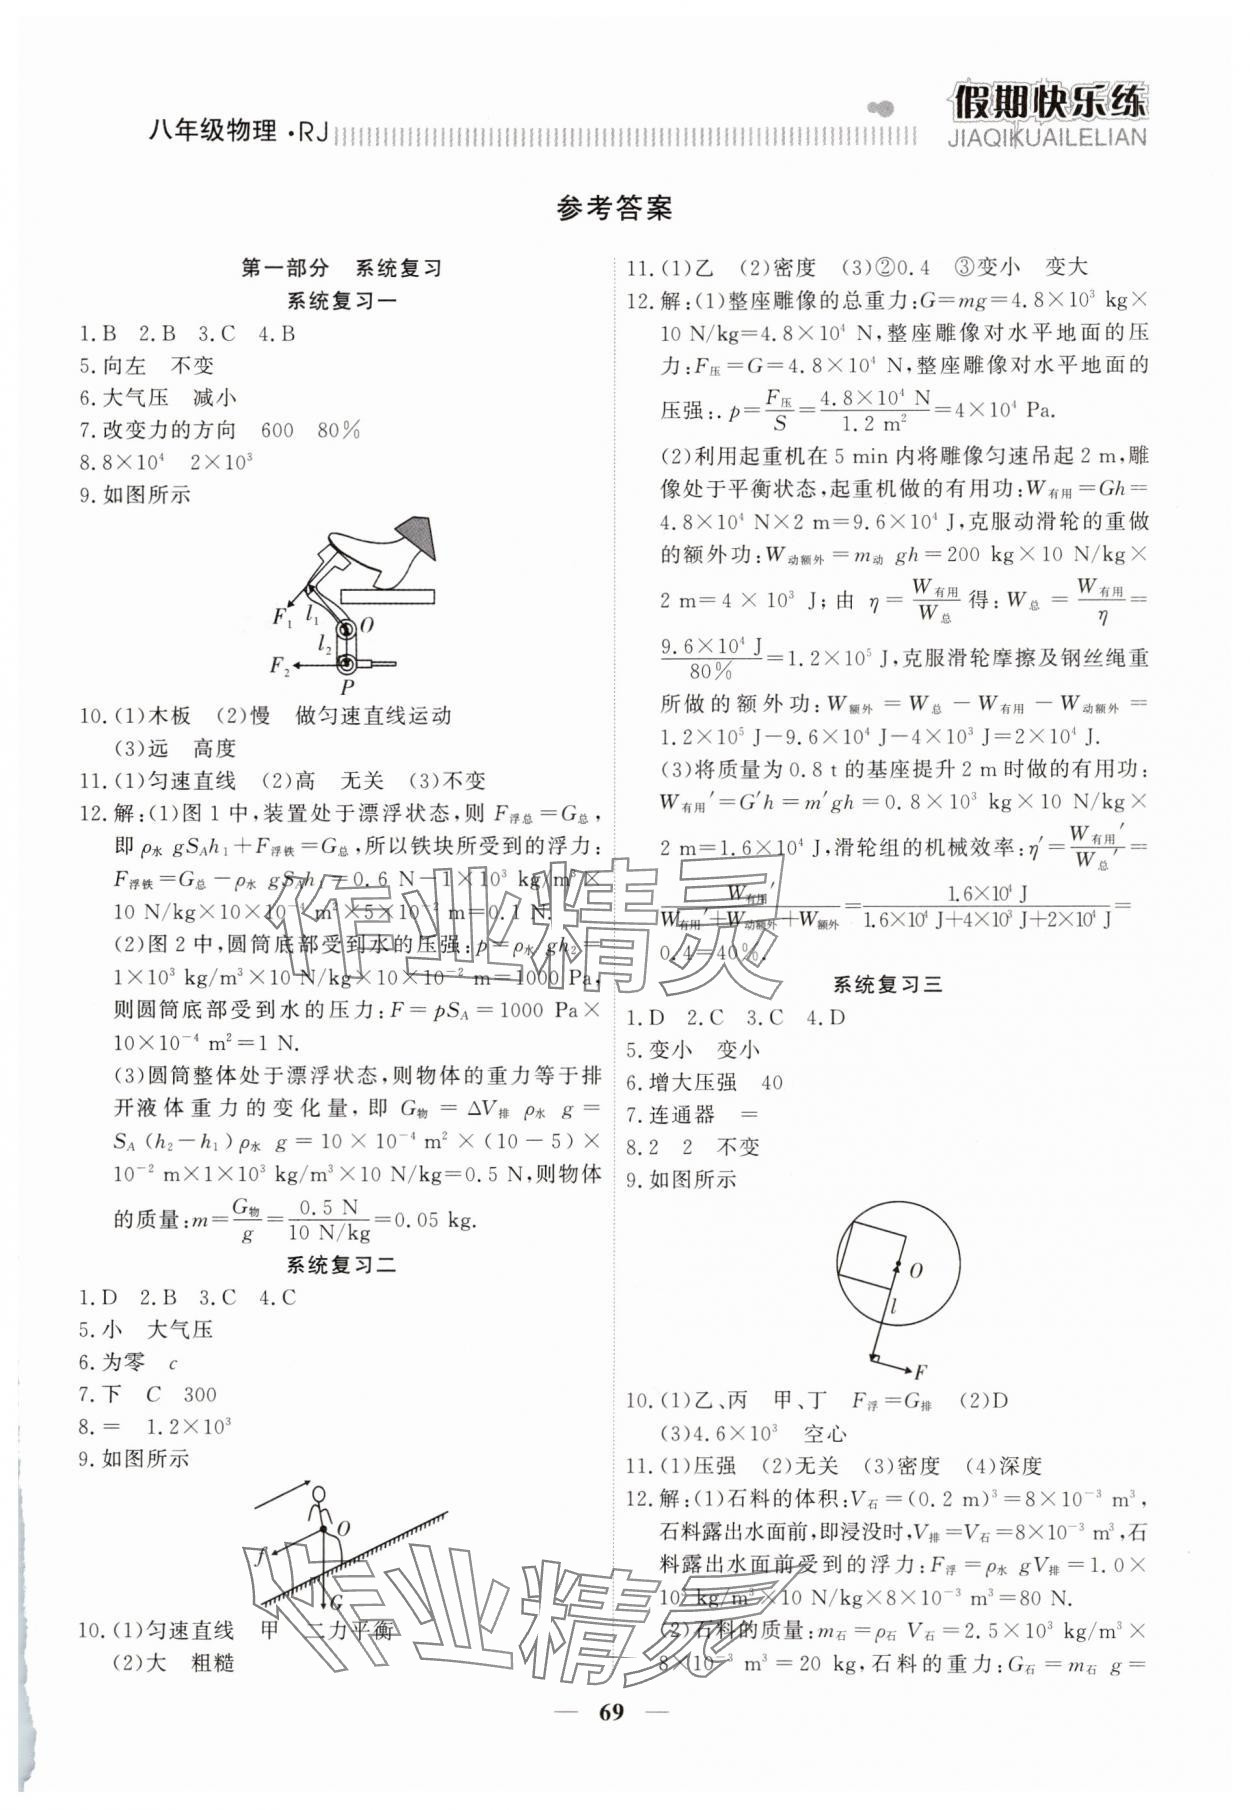 八年级物理·RJ
假期快乐练
JIAQIKUAILELIAN
参考答案
第一部分 系统复习
系统复习一
1.B 2.B 3.C 4.B
5.向左 不变
6.大气压 减小
7.改变力的方向 600 80%
8.8×10⁴ 2×10³
9.如图所示
F₁ l₁ O
l₂
F₂
P
10.(1)木板 (2)慢 做匀速直线运动
(3)远 高度
11.(1)匀速直线 (2)高 无关 (3)不变
12.解:(1)图1中,装置处于漂浮状态,则 F浮总=G总,
即 ρ水 gS_A h₁+F浮铁=G总,所以铁块所受到的浮力:
F浮铁=G总-ρ水 gS_A h₁=0.6 N-1×10³ kg/m³×
10 N/kg×10×10⁻⁴ m²×5×10⁻² m=0.1 N.
(2)图2中,圆筒底部受到水的压强:p=ρ水 gh₂=
1×10³ kg/m³×10 N/kg×10×10⁻² m=1000 Pa,
则圆筒底部受到水的压力:F=pS_A=1000 Pa×
10×10⁻⁴ m²=1 N.
(3)圆筒整体处于漂浮状态,则物体的重力等于排
开液体重力的变化量,即 G物=ΔV排 ρ水 g=
S_A(h₂-h₁)ρ水 g=10×10⁻⁴ m²×(10-5)×
10⁻² m×1×10³ kg/m³×10 N/kg=0.5 N,则物体
的质量:m=G物/g=0.5 N/10 N/kg=0.05 kg.
系统复习二
1.D 2.B 3.C 4.C
5.小 大气压
6.为零 c
7.下 C 300
8.= 1.2×10³
9.如图所示
O
f
G
10.(1)匀速直线 甲 二力平衡
(2)大 粗糙
11.(1)乙 (2)密度 (3)②0.4 ③变小 变大
12.解:(1)整座雕像的总重力:G=mg=4.8×10³ kg×
10 N/kg=4.8×10⁴ N,整座雕像对水平地面的压
力:F压=G=4.8×10⁴ N,整座雕像对水平地面的
压强:.p=F压/S=4.8×10⁴ N/1.2 m²=4×10⁴ Pa.
(2)利用起重机在5 min内将雕像匀速吊起2 m,雕
像处于平衡状态,起重机做的有用功:W有用=Gh=
4.8×10⁴ N×2 m=9.6×10⁴ J,克服动滑轮的重做
的额外功:W动额外=m动 gh=200 kg×10 N/kg×
2 m=4×10³ J;由 η=W有用/W总 得:W总=W有用/η=
9.6×10⁴ J/80%=1.2×10⁵ J,克服滑轮摩擦及钢丝绳重
所做的额外功:W额外=W总-W有用-W动额外=
1.2×10⁵ J-9.6×10⁴ J-4×10³ J=2×10⁴ J.
(3)将质量为0.8 t的基座提升2 m时做的有用功:
W有用′=G′h=m′gh=0.8×10³ kg×10 N/kg×
2 m=1.6×10⁴ J,滑轮组的机械效率:η′=W有用′/W总′=
W有用′/W有用′+W动额外+W额外=1.6×10⁴ J/1.6×10⁴ J+4×10³ J+2×10⁴ J=
0.4=40%.
系统复习三
1.D 2.C 3.C 4.D
5.变小 变小
6.增大压强 40
7.连通器 =
8.2 2 不变
9.如图所示
O
l
F
10.(1)乙、丙 甲、丁 F浮=G排 (2)D
(3)4.6×10³ 空心
11.(1)压强 (2)无关 (3)密度 (4)深度
12.解:(1)石料的体积:V石=(0.2 m)³=8×10⁻³ m³,
石料露出水面前,即浸没时,V排=V石=8×10⁻³ m³,石
料露出水面前受到的浮力:F浮=ρ水 gV排=1.0×
10³ kg/m³×10 N/kg×8×10⁻³ m³=80 N.
(2)石料的质量:m石=ρ石 V石=2.5×10³ kg/m³×
8×10⁻³ m³=20 kg,石料的重力:G石=m石 g=
作业精灵
作业精灵
69